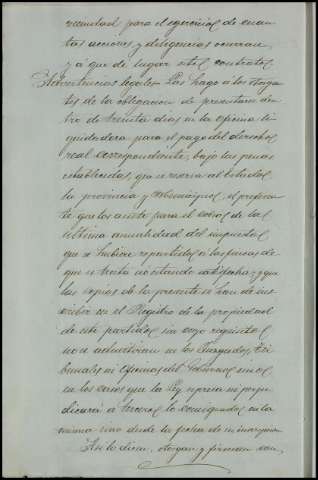 vecindad para el ejercicio de cuan-
tas acciones y diligencias ocurran
y á que dé lugar este contrato.
Advertencias legales = Las hago á los otorgan-
tes de la obligacion de presentar den-
tro de treinta dias en la oficina li-
quidadora para el pago del derecho
real correspondiente, bajo las penas
establecidas, que se reserva al Estado,
la provincia y Municipio, el preferen-
te que los asiste para el cobro de la
última anualidad del impuesto
que se hubiere repartido á las fincas de
que se trata no estando satisfecha; y que
las copias de la presente se han de ins-
cribir en el Registro de la propiedad
de este partido, sin cuyo requisito
no se admitirian en los Juzgados, Tri-
bunales ni Oficinas del Gobierno sino
en los casos que la Ley expresa ni perju-
dicará á tercero lo consignado en la
misma sino desde la fecha de su inscripcion
Asi lo dicen, otorgan y firman con